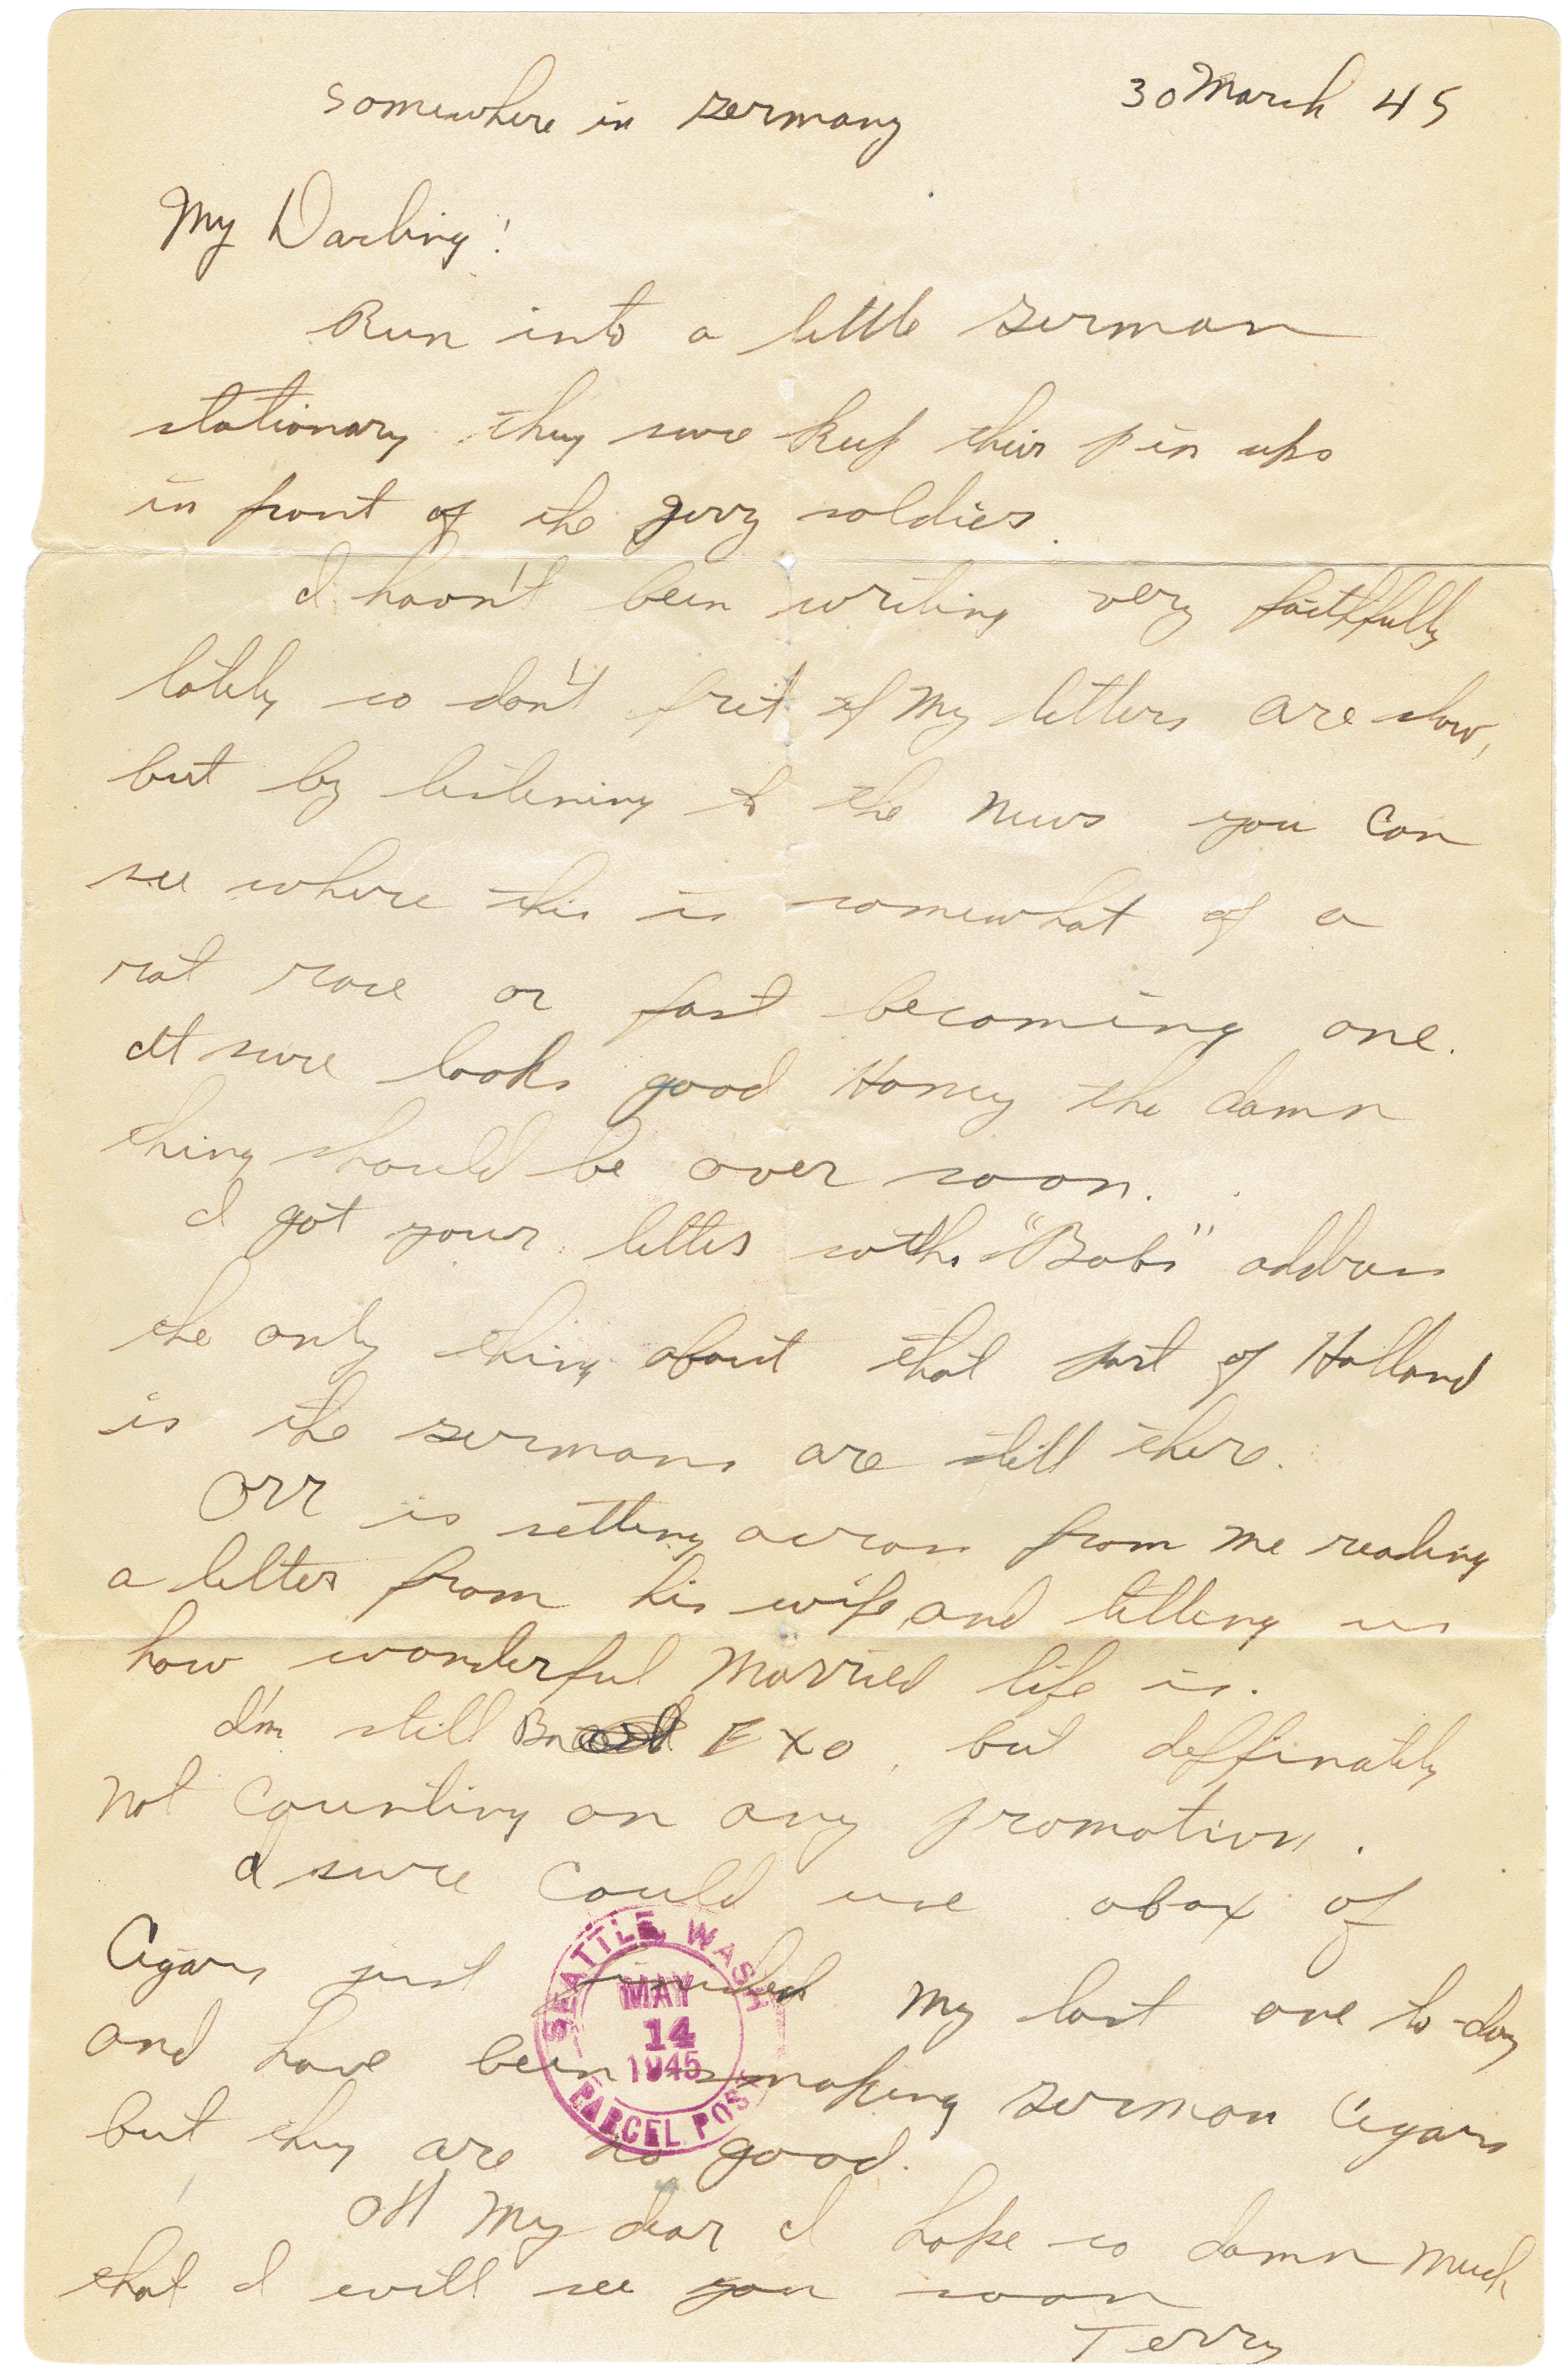 somewhere in Germany 30 March 45
My Darling!
Run into a little German
stationary they sure keep their pin ups
in front of the Jerry soldier.
I havn't been writing very faithfully
lately so don't fret if My letters are slow,
but by listening to the News you Can
see where this is somewhat of a
rat race or fast becoming one.
It sure looks good Honey the damn
thing should be over soon.
I got your letter with "Bobs" address
the only thing about that part of Holland
is the Germans are still there.
Orr is setting across from Me reading
a letter from his wife, and telling us
how wonderful Married life is.
I'm still Bn EXO, but deffinately
Not Counting on any promotion.
I sure Could use a box of
Cigars just finished My last one to-day
and have been smoking German Cigars
but they are no good.
All My dear I hope so damn Much
that I will see you soon
Terry
SEATTLE, WASH
MAY
14
1945
PARCEL POST